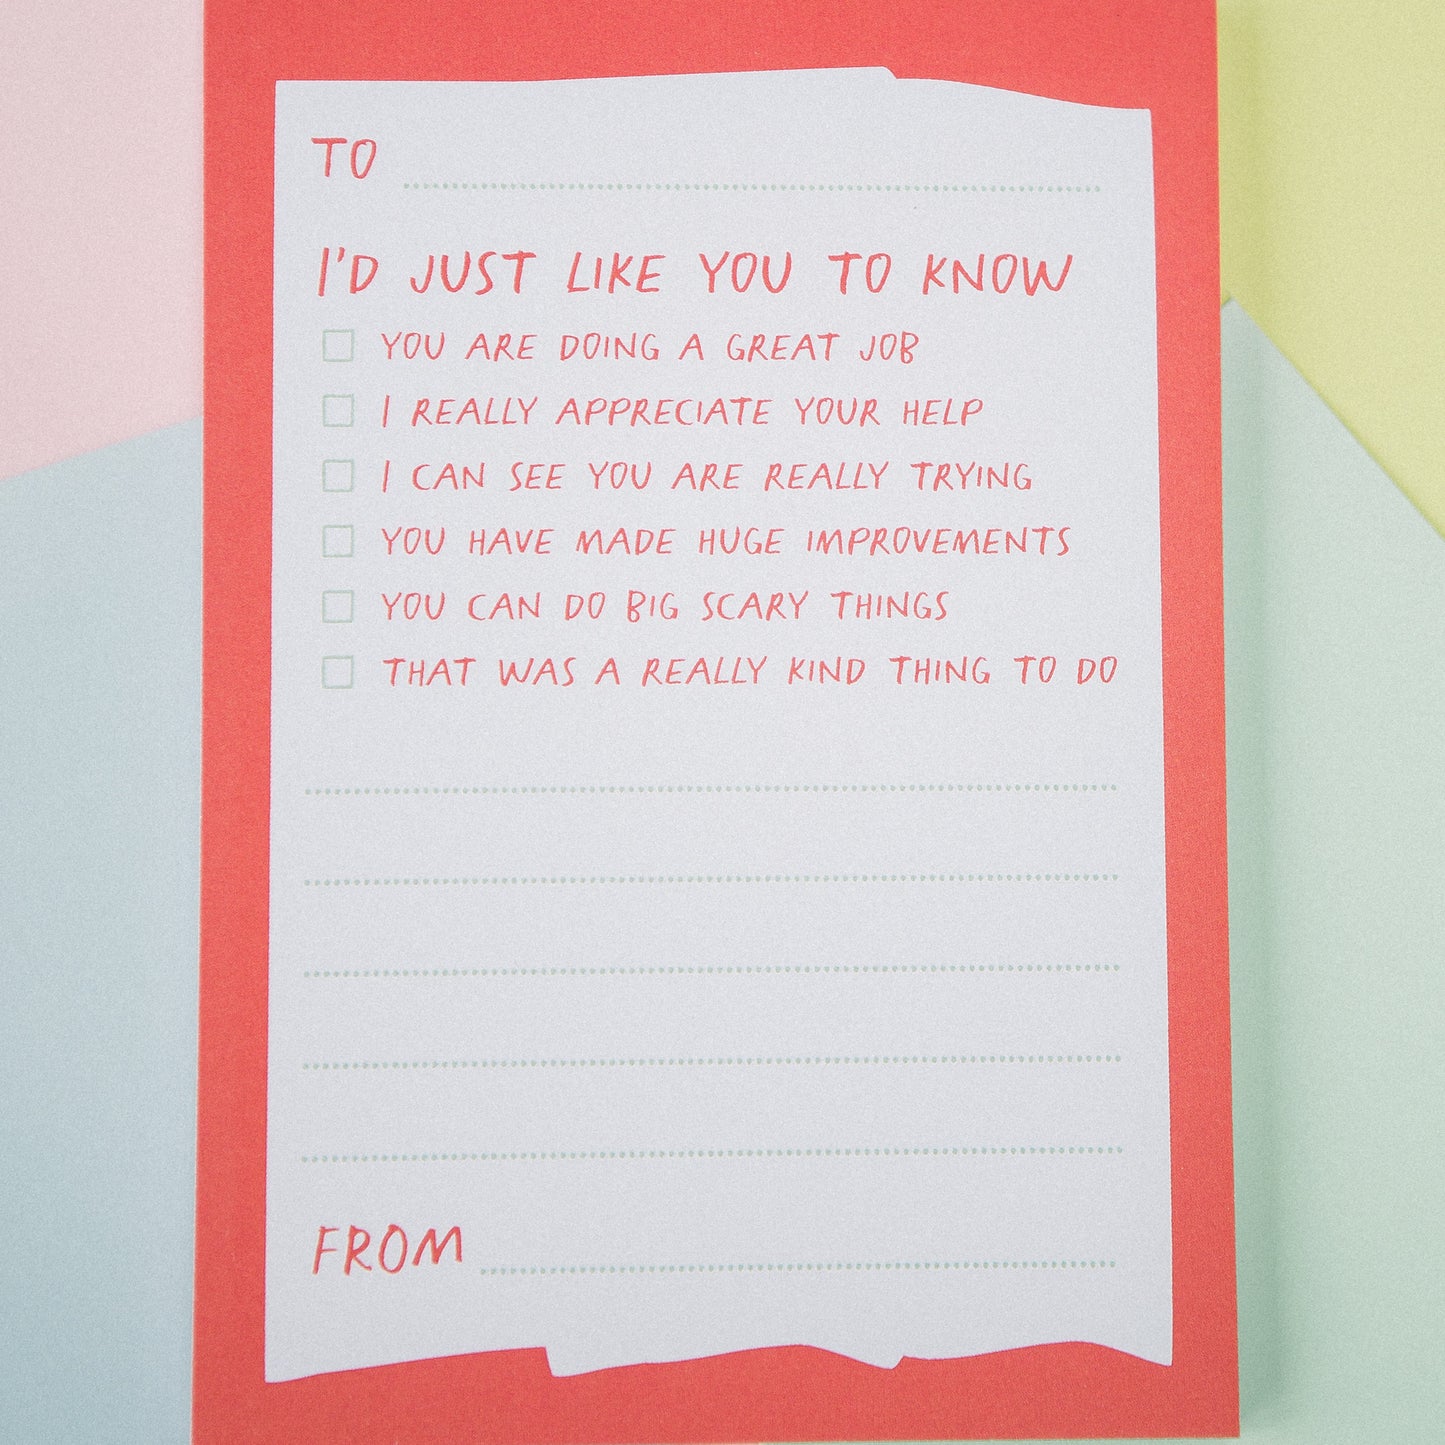 TO
I'D JUST LIKE YOU TO KNOW
YOU ARE DOING A GREAT JOB
I REALLY APPRECIATE YOUR HELP
I CAN SEE YOU ARE REALLY TRYING
YOU HAVE MADE HUGE IMPROVEMENTS
YOU CAN DO BIG SCARY THINGS
THAT WAS A REALLY KIND THING TO DO
FROM